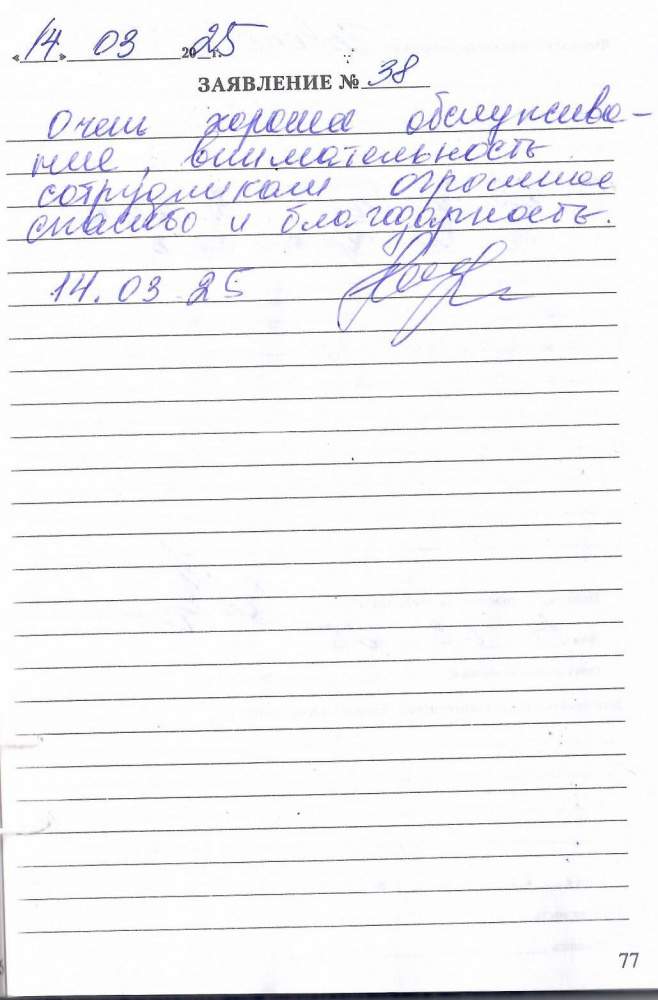 «14» 03 2025 г.
ЗАЯВЛЕНИЕ № 38
Очень хороша обслужива-
ние, внимательность
сотрудникам огромное
спасибо и благодарность.
14.03 25
77